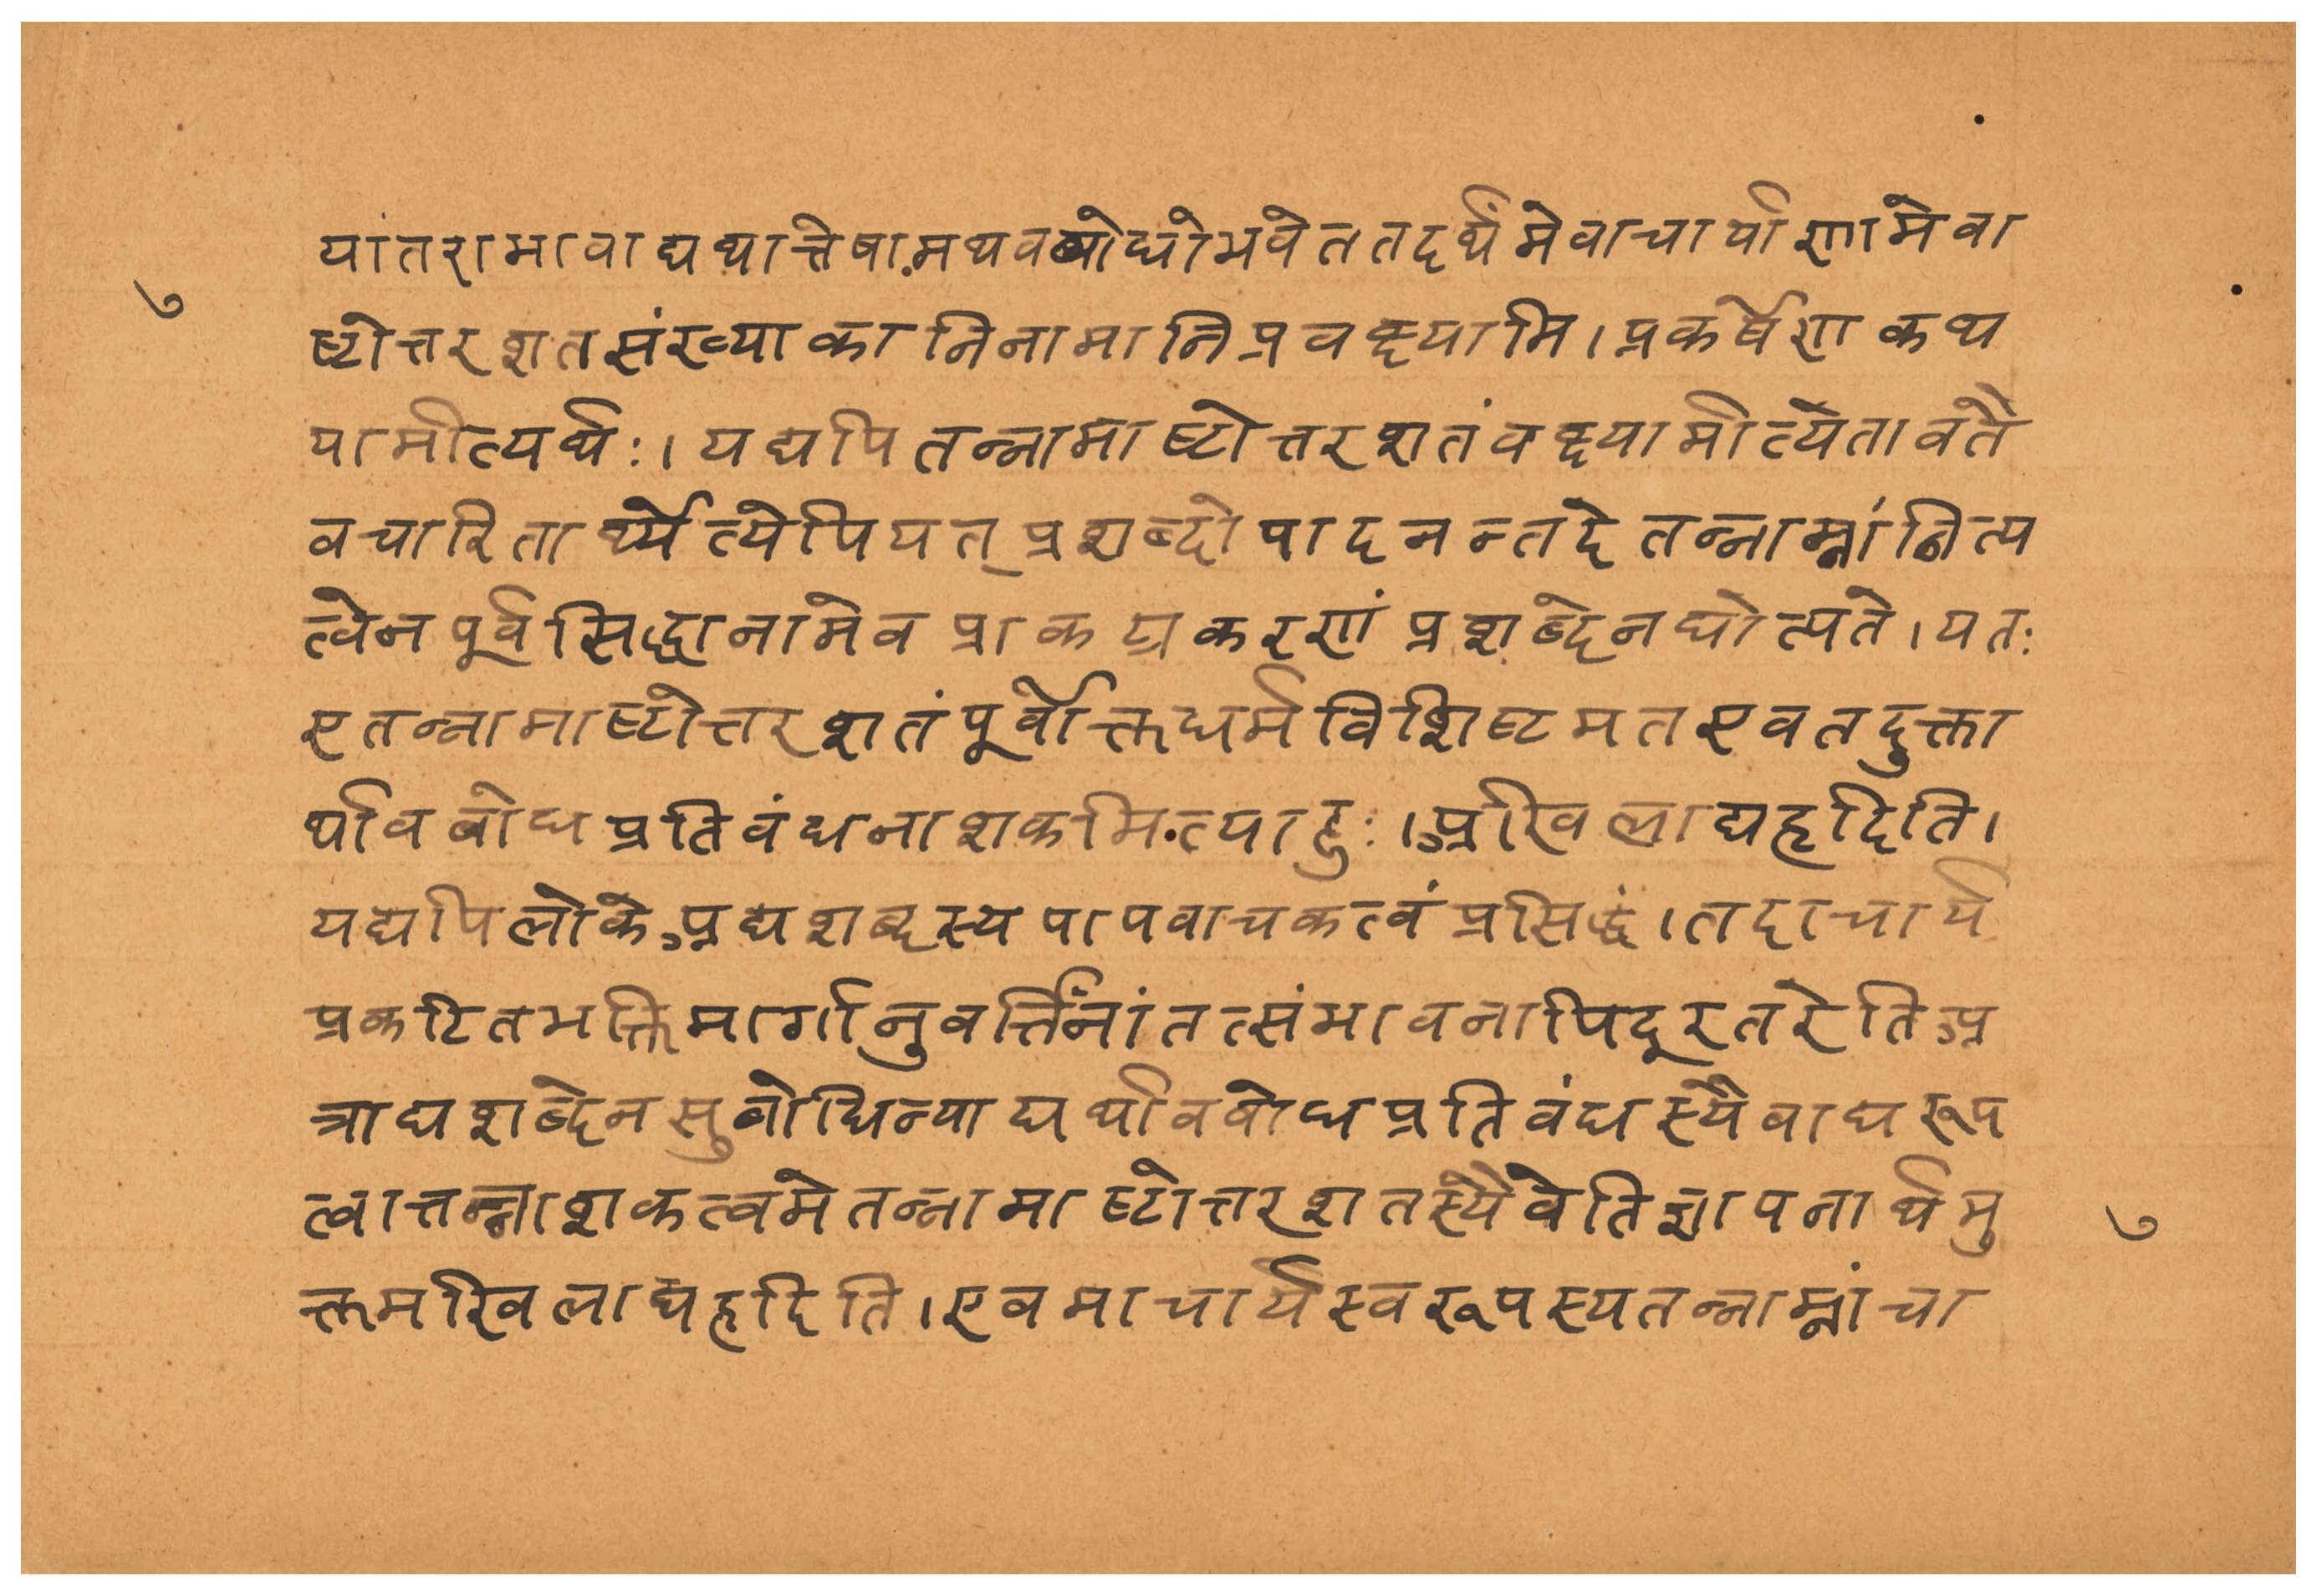 यांतराभावाद्यथात्तेषामथवबोधोभवेततदर्थमेवाचार्याणामेवा
७
ष्टोत्तरशतसंख्याकानिनामानिप्रवक्ष्यामि।प्रकर्षेणकथ
यामीत्यर्थः।यद्यपितन्नामाष्टोत्तरशतंवक्ष्यामीत्येतावतै
वचारितार्थ्येत्येपियत्प्रशब्दोपादनन्तदेतन्नाम्नांनित्य
त्वेनपूर्वसिद्धानामेवप्राकट्यकरणंप्रशब्देनद्योत्यते।यतः
एतन्नामाष्टोत्तरशतंपूर्वोक्तधर्मविशिष्टमतएवतदुक्ता
र्थावबोधप्रतिबंधनाशकमित्याहुः।अखिलाघहृदिति।
यद्यपिलोकेअघशब्दस्यपापवाचकत्वंप्रसिद्धं।तदाचार्य
प्रकटितभक्तिमार्गानुवर्त्तिनांतत्संभावनापिदूरतरेतिअ
त्राघशब्देनसुबोधिन्याद्यर्थावबोधप्रतिबंधस्यैवाघरूप
त्वात्तन्नाशकत्वमेतन्नामाष्टोत्तरशतस्यैवेतिज्ञापनार्थमु
७
क्तमखिलाघहृदिति।एवमाचार्यस्वरूपस्यतन्नाम्नांचा